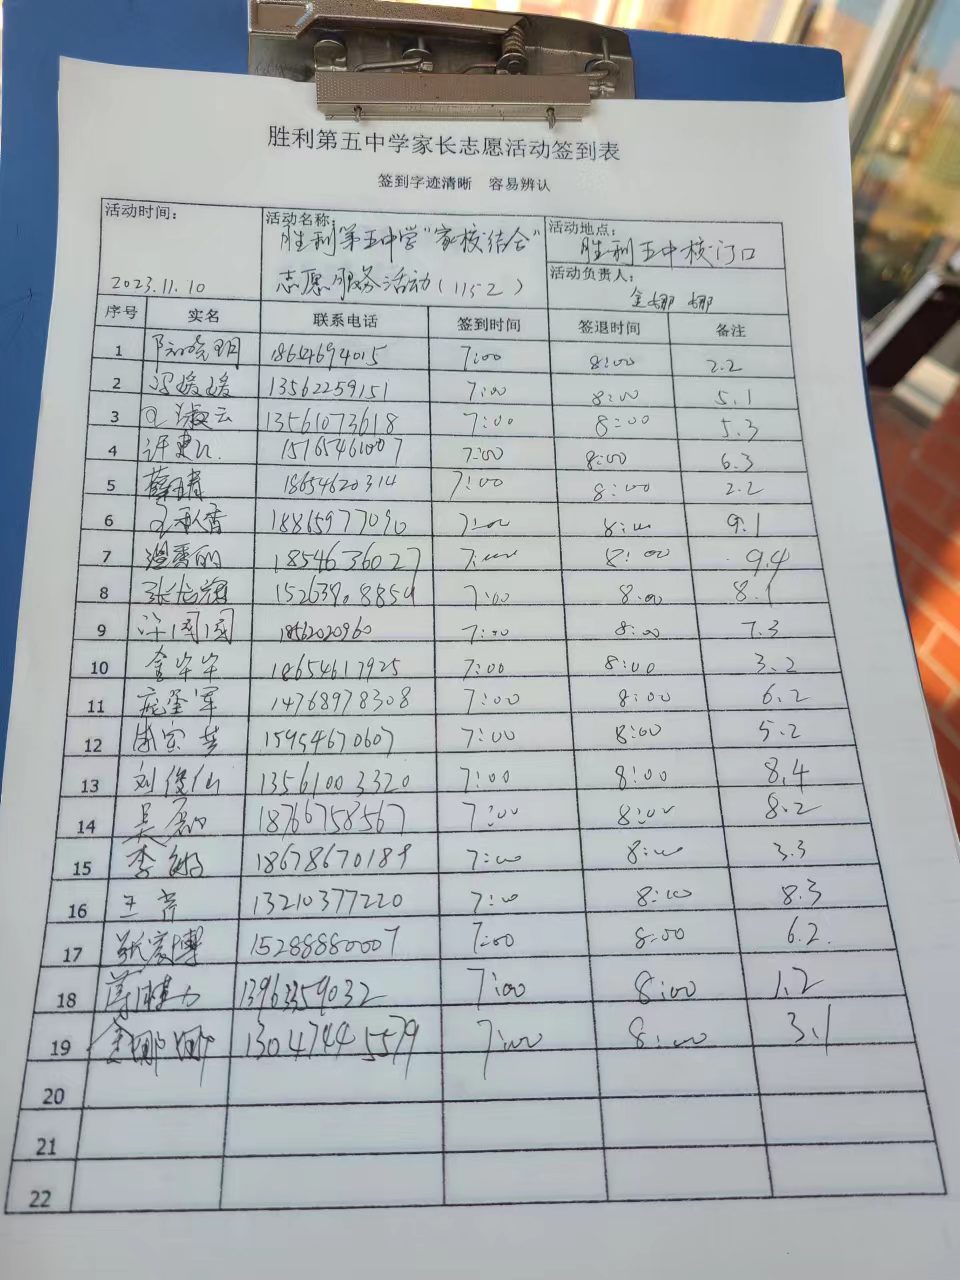 胜利第五中学家长志愿活动签到表
签到字迹清晰 容易辨认
活动时间：
2023.11.10
活动名称：
胜利第五中学"家校结合"
志愿服务活动（1152）
活动地点：
胜利五中校门口
活动负责人：
金娜娜
序号 实名 联系电话 签到时间 签退时间 备注
1 18654694015 7:00 8:00 2.2
2 13562259151 7:00 8:00 5.1
3 淑云 13561073618 7:00 8:00 5.3
4 许 15765461007 7:00 8:00 6.3
5 薛 18654620314 7:00 8:00 2.2
6 18865977090 7:00 8:00 9.1
7 温秀丽 18546736027 7:00 8:00 9.4
8 张 8854 7:00 8:00 8.1
9 许国国 1862020960 7:00 8:00 7.3
10 金 18654617925 7:00 8:00 3.2
11 庞 军 14768978308 7:00 8:00 6.2
12 15954670607 7:00 8:00 5.2
13 刘俊仙 13561003320 7:00 8:00 8.4
14 吴 18766758567 7:00 8:00 8.2
15 李 18678670189 7:00 8:00 3.3
16 王 13210377220 7:00 8:00 8.3
17 博 15288880007 7:00 8:00 6.2
18 13963359032 7:00 8:00 1.2
19 金娜娜 13047445579 7:00 8:00 3.1
20
21
22